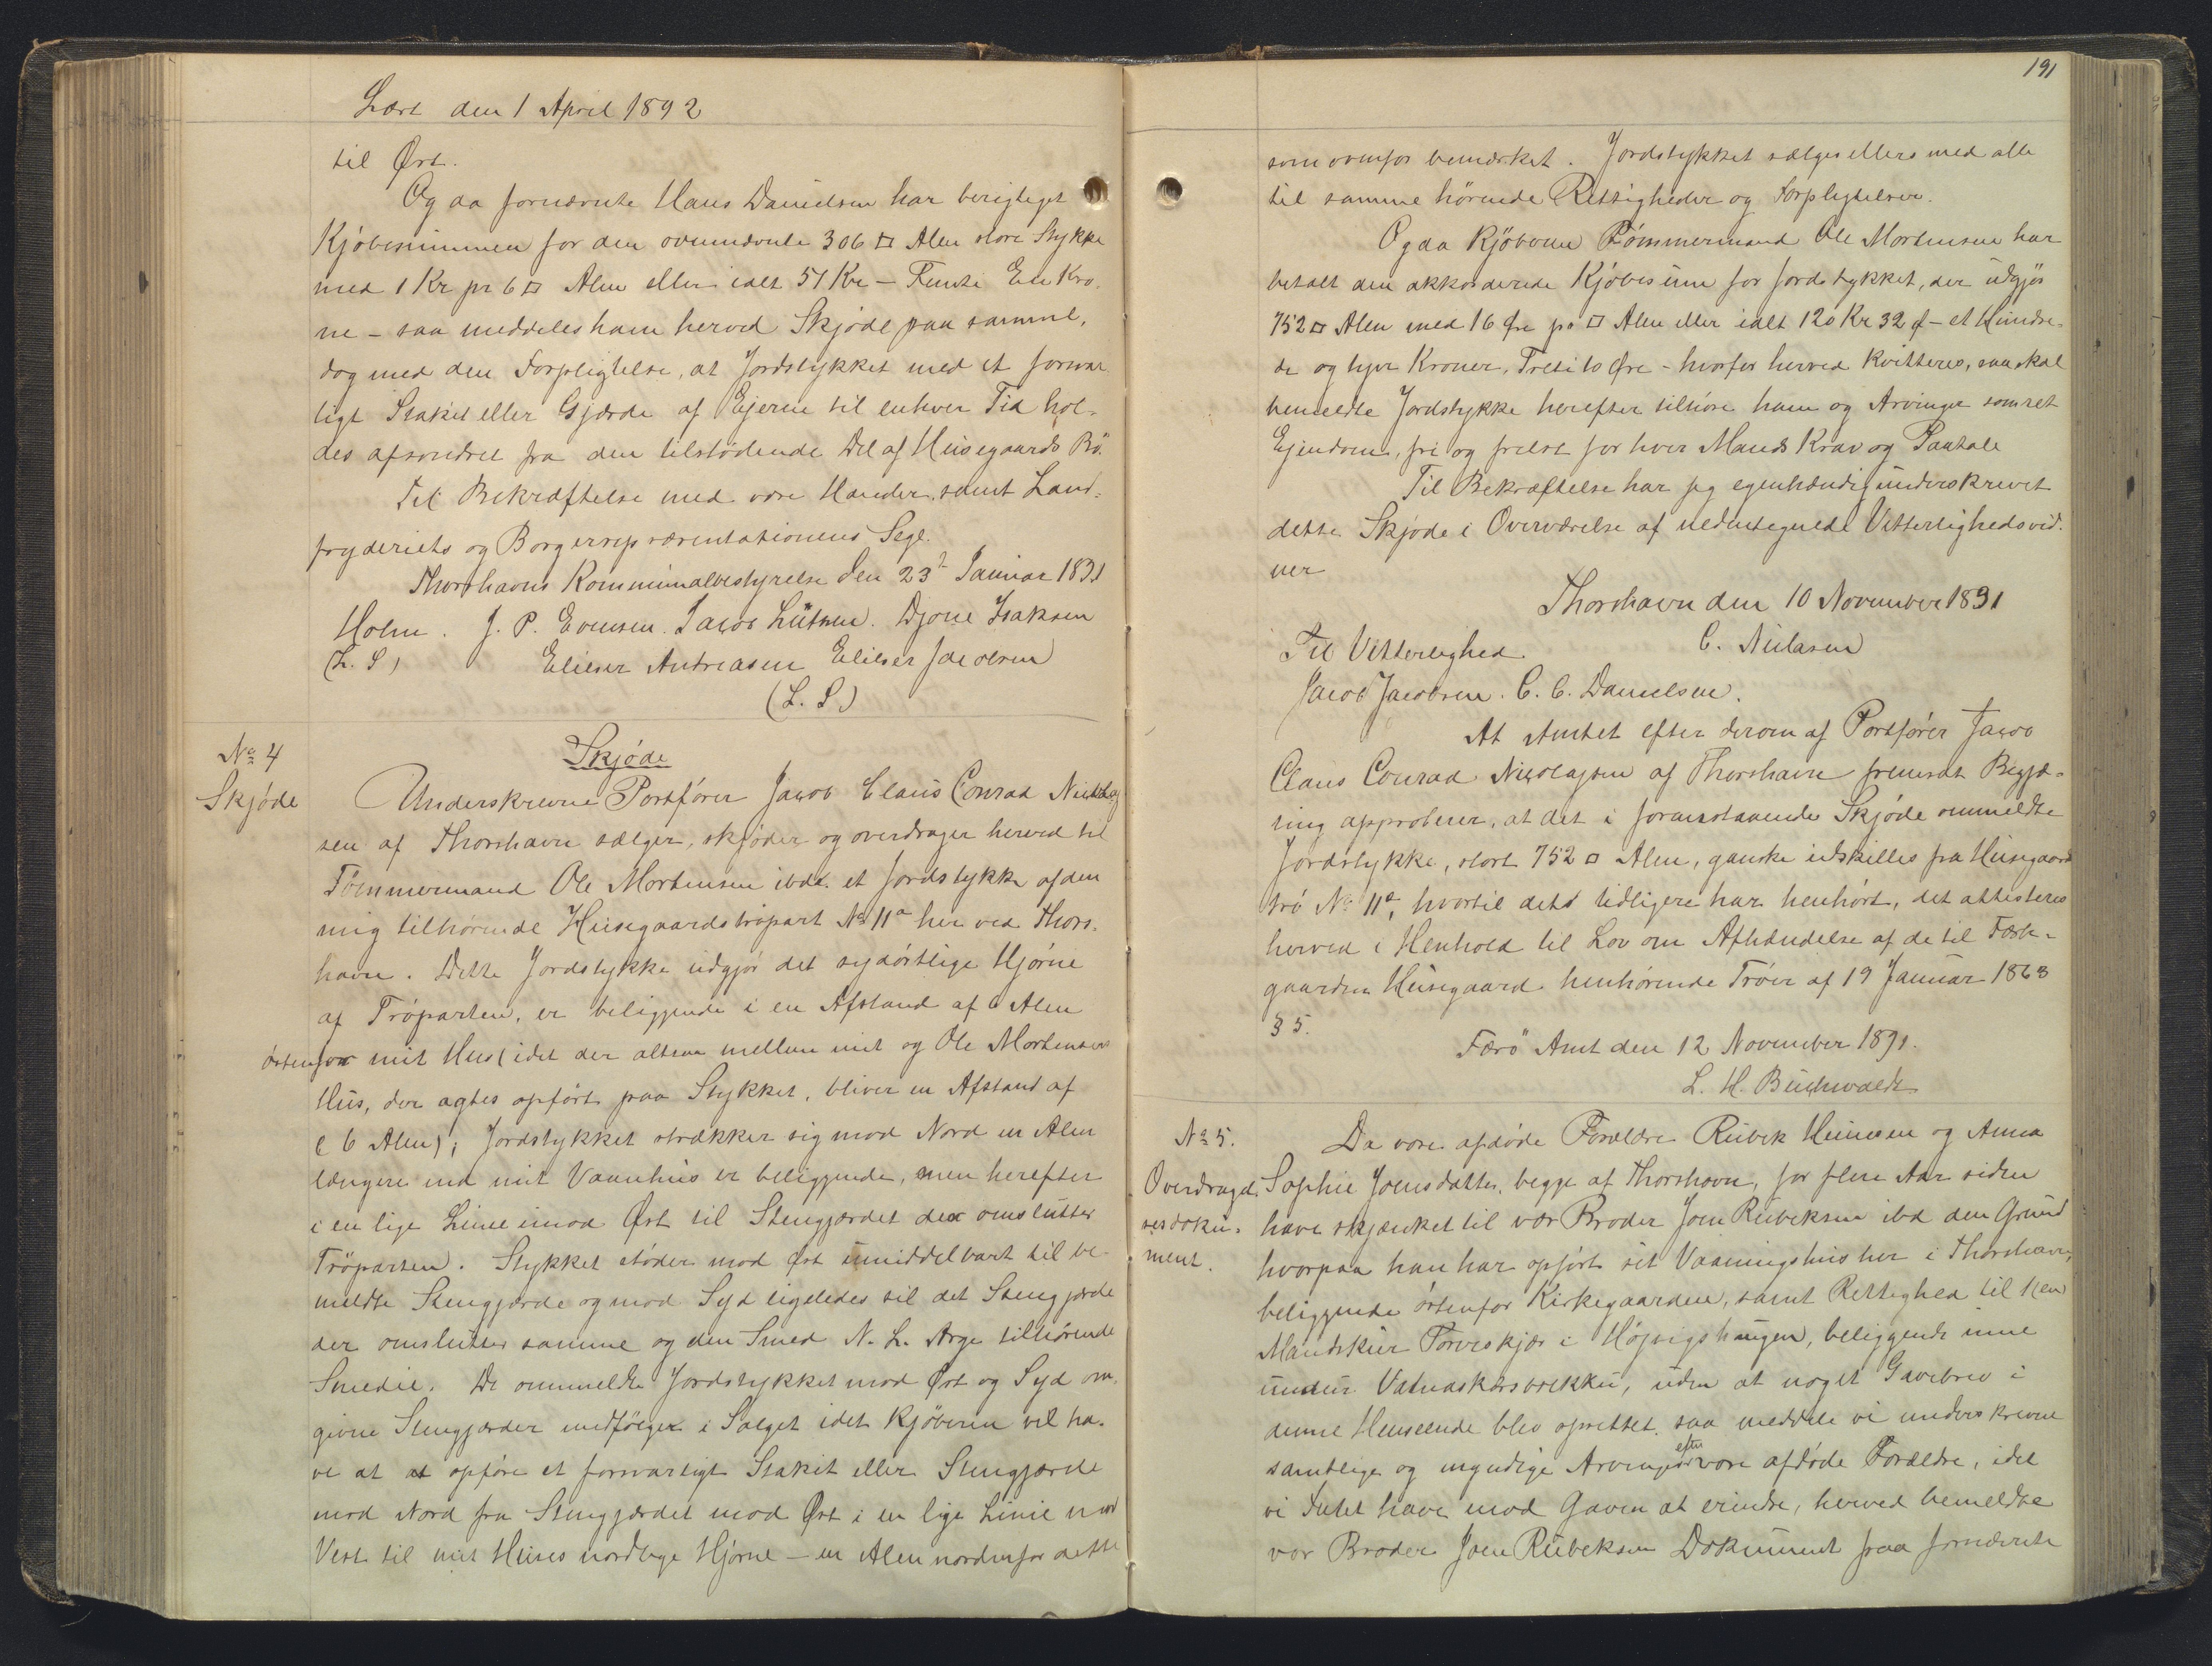 Læst den 1 April 1892
til Øst.
Og da fornævnte Hans Danielsen har berigtiget
Kjøbesummen for den ovennævnte 306 □ Alen store Stykke
med 1 Kr pr 6 □ Alen eller ialt 51 Kr – Femti En Kro-
ne – saa meddeles ham herved Skjøde paa samme,
dog med den Forpligtelse, at Jordstykket med et forsvar
ligt Stakit eller Gjærde af Ejerne til enhver Tid hol-
des afsondret fra den tilstødende Del af Husegaards Bö.
Til Bekræftelse med vore Hænder samt Land-
fogderiets og Borgerrepræsentationens Segl.
Thorshavns Kommunalbestyrelse den 23de Januar 1891
Holm. J. P. Evensen. Jacob Lützen. Djone Isaksen
(L. S) Elieser Andreasen Elieser Jacobsen
(L. S)
No 4
Skjøde
Skjøde
Underskrevne Portfører Jacob Claus Conrad Nicolaj
sen af Thorshavn sælger, skjøder og overdrager herved til
Tømmermand Ole Mortensen ibd. et Jordstykke af den
mig tilhørende Husegaardstrøpart No 11a her ved Thors-
havn. Dette Jordstykke udgjør det sydöstlige Hjörne
af Tröparten, er beliggende i en Afstand af 6 Alen
østenfor mit Hus (idet der altsaa mellem mit og Ole Mortensens
Hus, der agtes opført paa Stykket, bliver en Afstand af
(6 Alen); Jordstykket strækker sig mod Nord en Alen
længere end mit Vaanhus er beliggende, men herefter
i en lige Linie imod Øst til Stengjærdet der omslutter
Tröparten. Stykket støder mod Øst umiddelbart til be-
meldte Stengjærde og mod Syd ligeledes til det Stengjærde
der omslutter samme og den Smed N. L. Arge tilhörende
Smedie. De ommeldte Jordstykket mod Øst og Syd om-
givne Stengjærder medfølger i Salget idet Kjöberen vil ha-
ve at at opføre et forsvarligt Stakit eller Stengjærde
mod Nord fra Stengjærdet mod Øst i en lige Linie mod
Vest til mit Huses nordlige Hjörne – en Alen nordenfor dette
191
som ovenfor bemærket. Jordstykket sælges ellers med alle
til samme hörende Rettigheder og Forpligtelser.
Og da Kjöberen Tømmermand Ole Mortensen har
betalt den akkorderede Kjøbesum for Jordstykket, der udgjör
752 □ Alen med 16 Øre pr □ Alen eller ialt 120 Kr 32 Ø – et Hundre-
de og tyve Kroner, Treti to Øre – hvorfor herved kvitteres, saa skal
bemeldte Jordstykke herefter tilhöre ham og Arvinger som ret
Ejendom, fri og frelst for hver Mands Krav og Paatale
Til Bekræftelse har jeg egenhændig underskrevet
dette Skjøde i Overværelse af nedentegnede Vitterlighedsvid-
ner
Thorshavn den 10 November 1891
Til Vitterlighed. C. Nielasen
Jacob Jacobsen. C. C. Danielsen.
At Amtet efter derom af Portfører Jacob
Claus Conrad Nicolajsen af Thorshavn fremsat Begjæ-
ring approberer, at det i foranstaaende Skjøde ommeldte
Jordstykke, stort 752 □ Alen, ganske udskilles fra Husegaards
trö No 11a, hvortil det tidligere har henhört, det attesteres
herved i Henhold til Lov om Afhændelse af de til Fæste-
gaarden Husegaard henhørende Tröer af 19 Januar 1863
§ 5.
Færö Amt den 12 November 1891.
L. H. Buchwaldt
No 5.
Overdragel-
sesdoku-
ment.
Da vore afdøde Forældre Rubek Heinesen og Anna
Sophie Joensdatter, begge af Thorshavn, for flere Aar siden
have skjænket til vor Broder Joen Rubeksen ibd den Grund
hvorpaa han har opfört sit Vaaningshus her i Thorshavn,
beliggende östenfor Kirkegaarden, samt Rettighed til 1 (en)
Mandskur Törveskjær i Højvigshaugen, beliggende inne
undur Vatnaskørsbrekku, uden at noget Gavebrev i
denne Henseende blev oprettet, saa meddele vi underskrevne
samtlige og myndige Arvinger efter vore afdøde Forældre, idet
vi Intet have mod Gaven at erindre, herved bemeldte
vor Broder Joen Rubeksen Dokument paa fornævnte